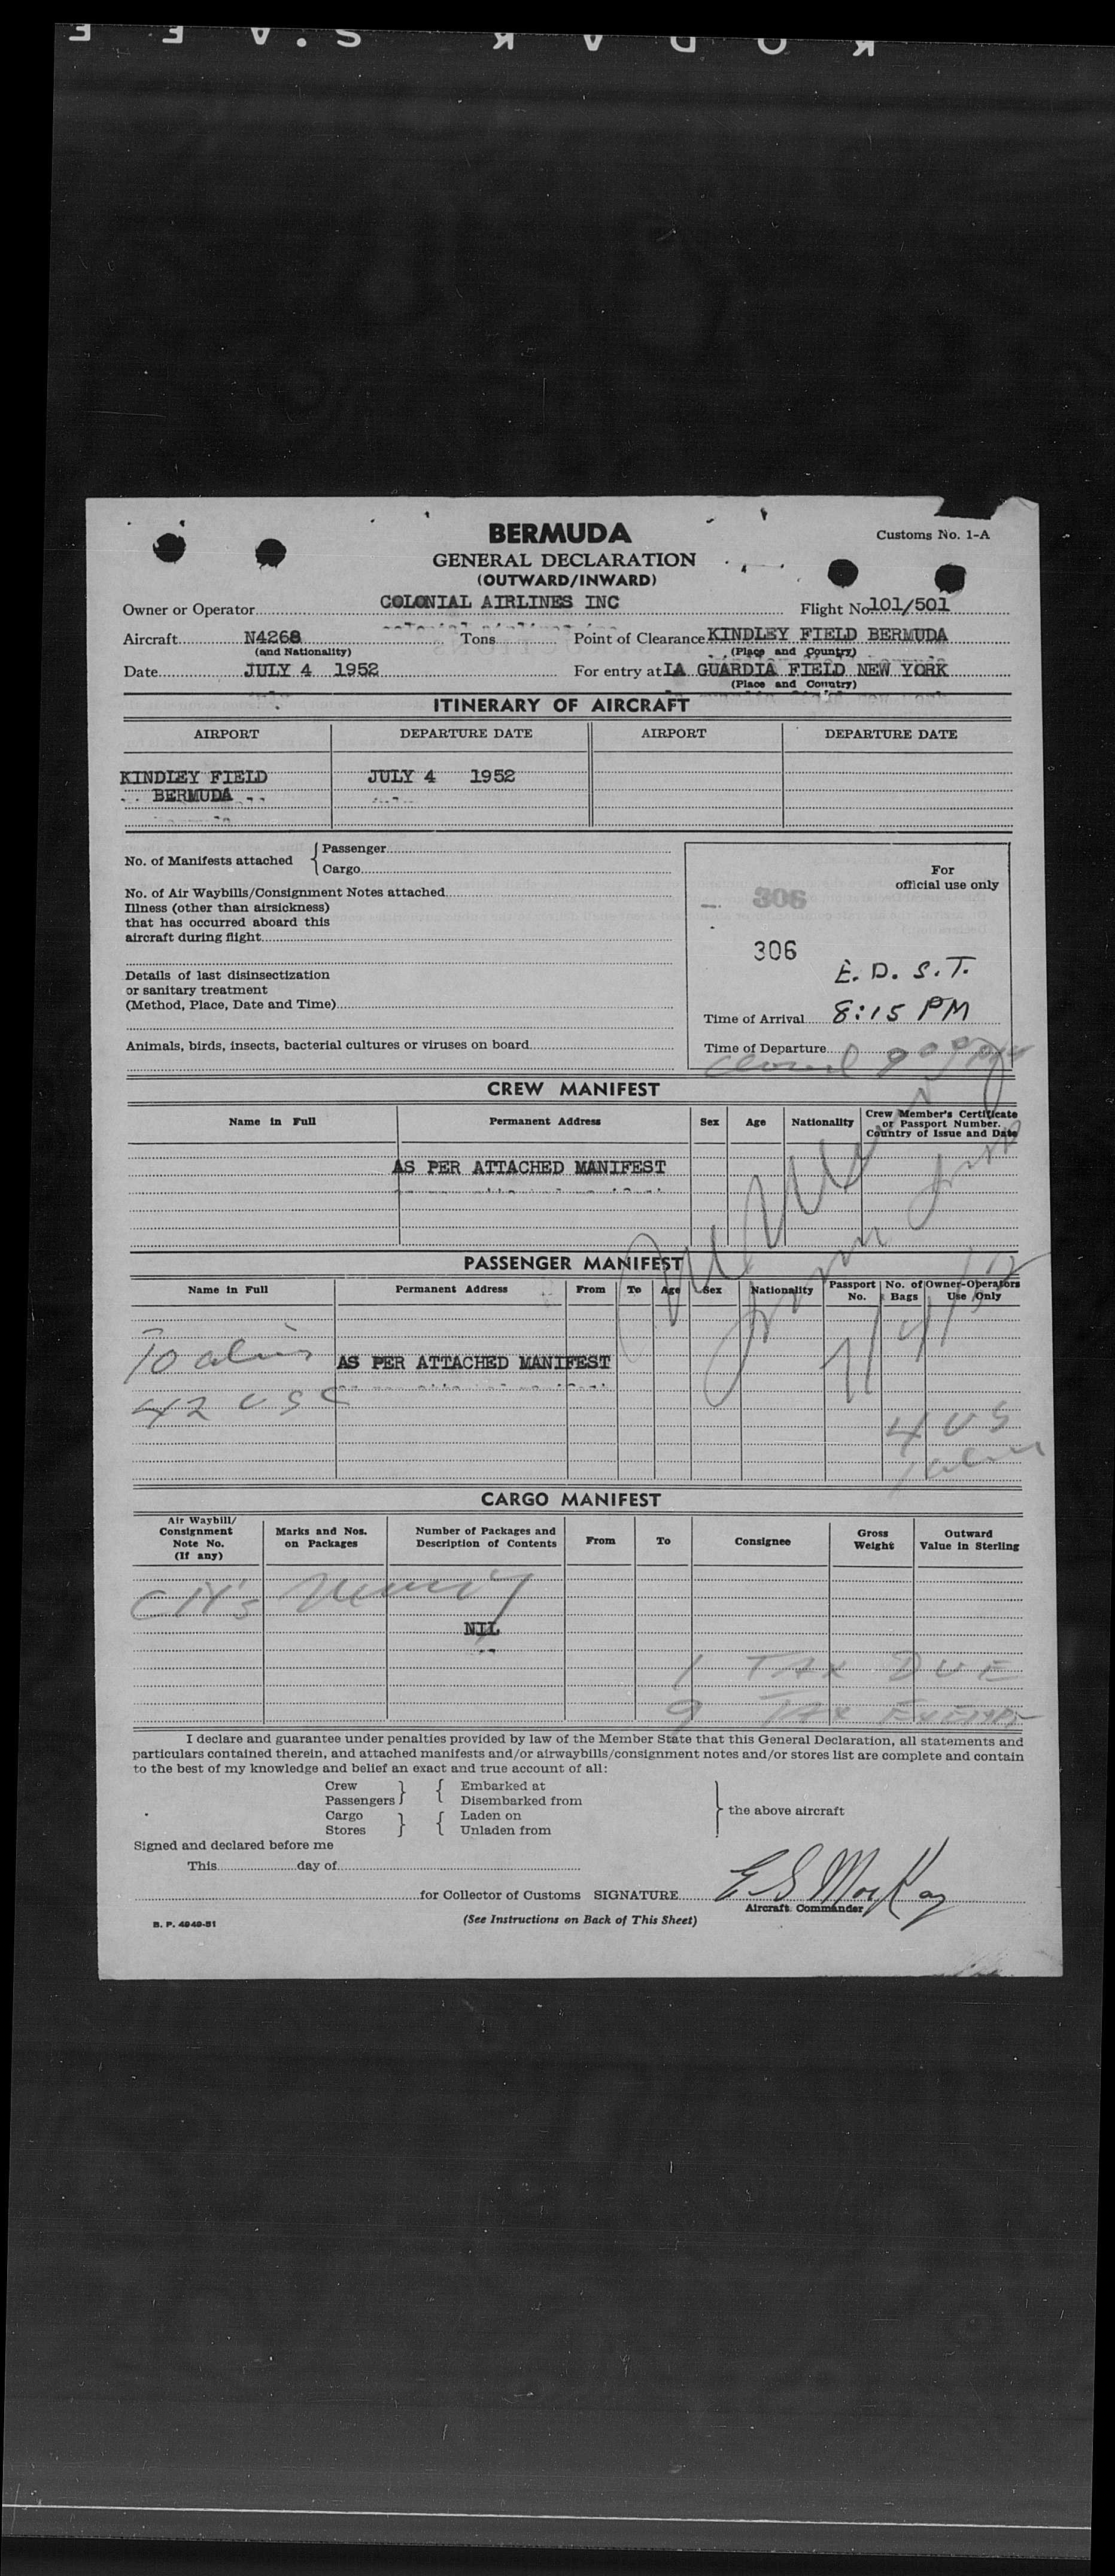 KODAK S.A F E
BERMUDA
Customs No. 1-A
GENERAL DECLARATION
(OUTWARD/INWARD)
Owner or Operator COLONIAL AIRLINES INC Flight No 101/501
Aircraft N4268 Tons Point of Clearance KINDLEY FIELD BERMUDA
(and Nationality) (Place and Country)
Date JULY 4 1952 For entry at LA GUARDIA FIELD NEW YORK
(Place and Country)
ITINERARY OF AIRCRAFT
AIRPORT DEPARTURE DATE AIRPORT DEPARTURE DATE
KINDLEY FIELD JULY 4 1952
BERMUDA
No. of Manifests attached { Passenger
Cargo
No. of Air Waybills/Consignment Notes attached
Illness (other than airsickness)
that has occurred aboard this
aircraft during flight
Details of last disinsectization
or sanitary treatment
(Method, Place, Date and Time)
Animals, birds, insects, bacterial cultures or viruses on board
For
official use only
306
306
E. D. S. T.
Time of Arrival 8:15 PM
Time of Departure
CREW MANIFEST
Name in Full Permanent Address Sex Age Nationality Crew Member's Certificate
or Passport Number.
Country of Issue and Date
AS PER ATTACHED MANIFEST
PASSENGER MANIFEST
Name in Full Permanent Address From To Age Sex Nationality Passport No. No. of Bags Owner-Operators Use Only
7/4/52
10 aliens AS PER ATTACHED MANIFEST
42 USC
4 US
1 alien
CARGO MANIFEST
Air Waybill/
Consignment
Note No.
(If any)
Marks and Nos.
on Packages
Number of Packages and
Description of Contents
From To Consignee
Gross
Weight
Outward
Value in Sterling
NIL
1 TAX DUE
9 TAX EXEMPT
I declare and guarantee under penalties provided by law of the Member State that this General Declaration, all statements and
particulars contained therein, and attached manifests and/or airwaybills/consignment notes and/or stores list are complete and contain
to the best of my knowledge and belief an exact and true account of all:
Crew } { Embarked at
Passengers } { Disembarked from
Cargo } { Laden on } the above aircraft
Stores } { Unladen from
Signed and declared before me
This day of
for Collector of Customs SIGNATURE E S MacKay
Aircraft Commander
B. P. 4949-51 (See Instructions on Back of This Sheet)